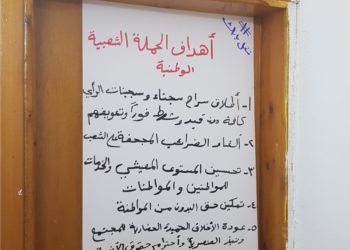 أهداف الحملة الشعبية
الوطنية
١- إطلاق سراح سجناء وسجينات الرأي
كافة دون قيد وشرط فوراً وتعويضهم
٢- الغاء الضرائب المجحفة على الشعب
٣- تحسين المستوى المعيشي والخدمات
للمواطنين والمواطنات
٤- تمكين حق البدون من المواطنة
٥- عودة الأخلاق الحميدة العقارية للمجتمع
ونبذ العنصرية واحترام حقوق